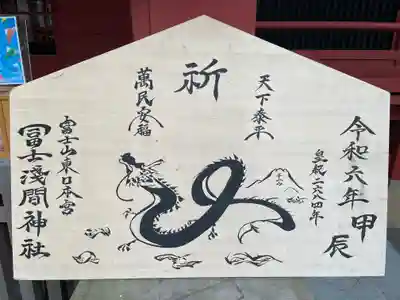 令和六年甲辰
皇紀二六八四年
天下泰平
祈
萬民安福
富士山東口本宮
冨士浅間神社